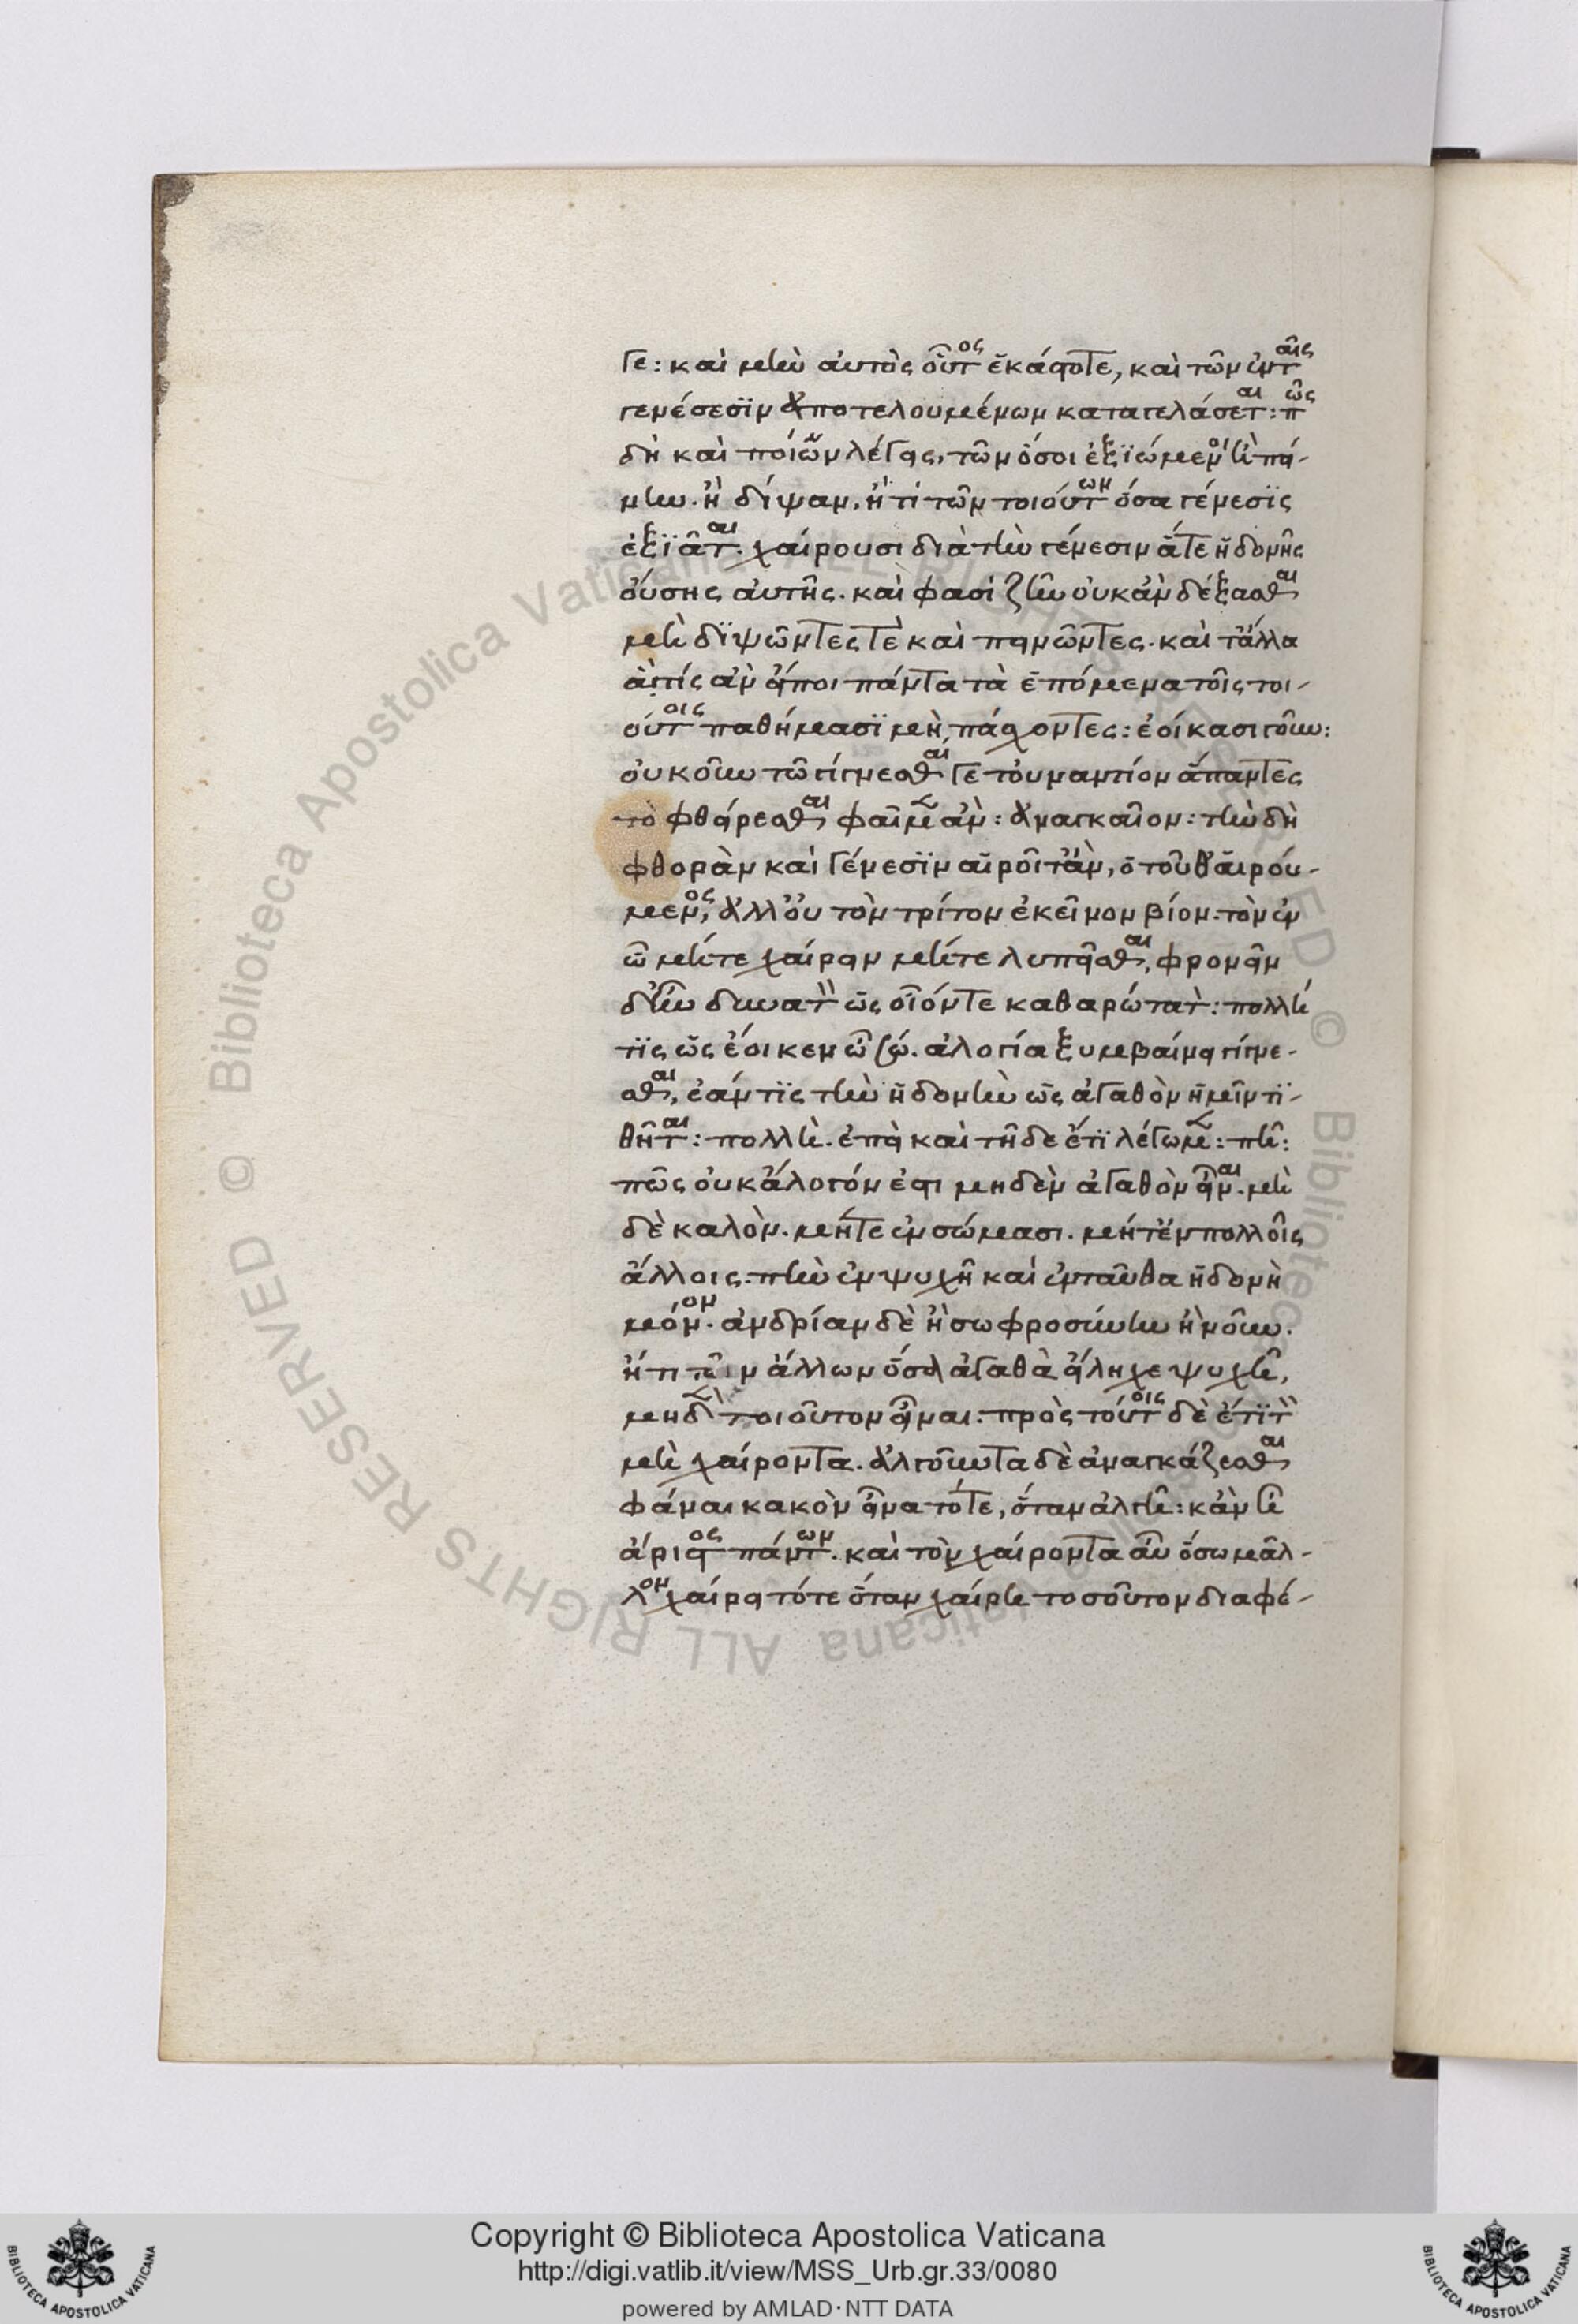 γε: καὶ μὴν αὐτὸς οὗτος ἑκάστοτε, καὶ τῶν ἐν ταῖς
γενέσεσϊν ἀποτελουμένων καταγελάσεται: πῶς
δὴ καὶ ποίων λέγεις. τῶν ὅσοι ἐξϊώμενοι ἢ πεί-
νην. ἢ δίψαν. ἤ τι τῶν τοιούτων ὅσα γένεσϊς
ἐξϊᾶται. χαίρουσι διὰ τὴν γένεσιν ἅτε ἡδονῆς
οὔσης αὐτῆς. καὶ φασὶ ζῆν οὐκ ἂν δέξασθαι
μὴ δϊψῶντες τὲ καὶ πεινῶντες. καὶ τἄλλα
ἅ τίς ἂν εἴποι πάντα τὰ ἑπόμενα τοῖς τοι-
ούτοις παθήμασϊ μὴ πάσχοντες: ἐοίκασι γοῦν:
οὐκοῦν τῶ γίγνεσθαί γε τοὐναντίον ἅπαντες
τὸ φθείρεσθαι φαῖμεν ἂν: ἀναγκαῖον: τὴν δὴ
φθορὰν καὶ γένεσϊν αἱροῖτ' ἂν, ὁ τοῦθ' αἱρού-
μενος, ἀλλ' οὐ τὸν τρίτον ἐκεῖνον βίον. τὸν ἐν
ὧ μήτε χαίρειν μήτε λυπεῖσθαι, φρονεῖν
δ' ἦν δυνατὸν ὡς οἷόντε καθαρώτατα: πολλή
τϊς ὡς ἔοικεν ὦ σώ. ἀλογία ξυμβαίνει γίγνε-
σθαι, ἐάν τϊς τὴν ἡδονὴν ὡς ἀγαθὸν ἡμῖν τϊ-
θῆται: πολλὴ. ἐπεὶ καὶ τῆδε ἔτϊ λέγωμεν: πῆ:
πῶς οὐκ ἄλογόν ἐστι μηδὲν ἀγαθὸν εἶναι. μὴ
δὲ καλὸν. μήτε ἐν σώμασι. μήτ' ἐν πολλοῖς
ἄλλοις. πλὴν ἐν ψυχῆ καὶ ἐνταῦθα ἡδονὴ
μόνον. ἀνδρίαν δὲ ἢ σωφροσύνην ἢ νοῦν.
ἤ τι τῶν ἄλλων ὅσα ἀγαθὰ εἴληχε ψυχῆ,
μηδὲν τοιοῦτον εἶναι: πρὸς τούτοις δὲ ἔτϊ τὸν
μὴ χαίροντα. ἀλγοῦντα δὲ ἀναγκάζεσθαι
φάναι κακὸν εἶνα τότε, ὅταν ἀλγῆ: κἂν ἦ
ἄριστος πάντων. καὶ τὸν χαίροντα αὖ ὅσω μᾶλ-
λον χαίρει τότε ὅταν χαίρη τοσοῦτον διαφέ-
Copyright © Biblioteca Apostolica Vaticana
http://digi.vatlib.it/view/MSS_Urb.gr.33/0080
powered by AMLAD·NTT DATA